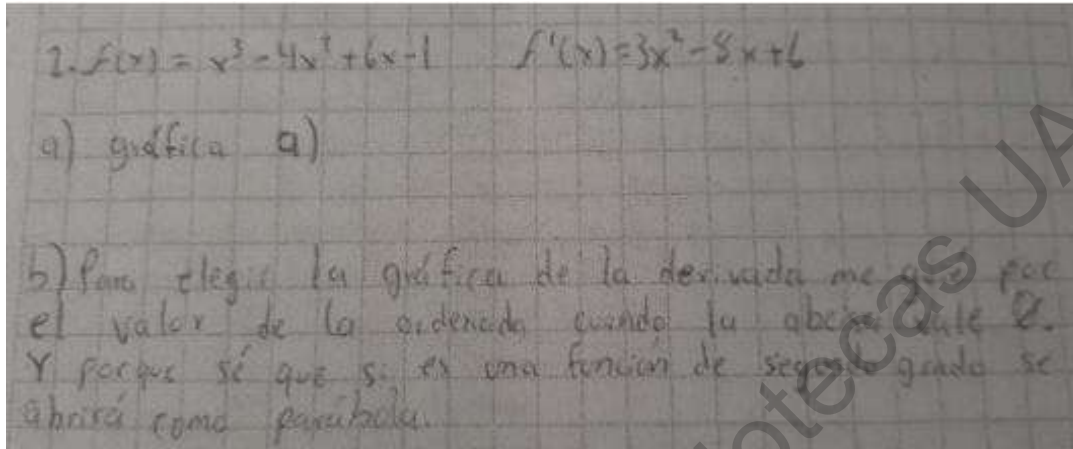 2. f(x) = x³ - 4x² + 6x - 1 f'(x) = 3x² - 8x + 6
a) gráfica a)
b) Para elegir la gráfica de la derivada me guié por
el valor de la ordenada cuando la vale
Y porque sé que si es una función de segundo grado se
abrirá como parábola.
otecas UA